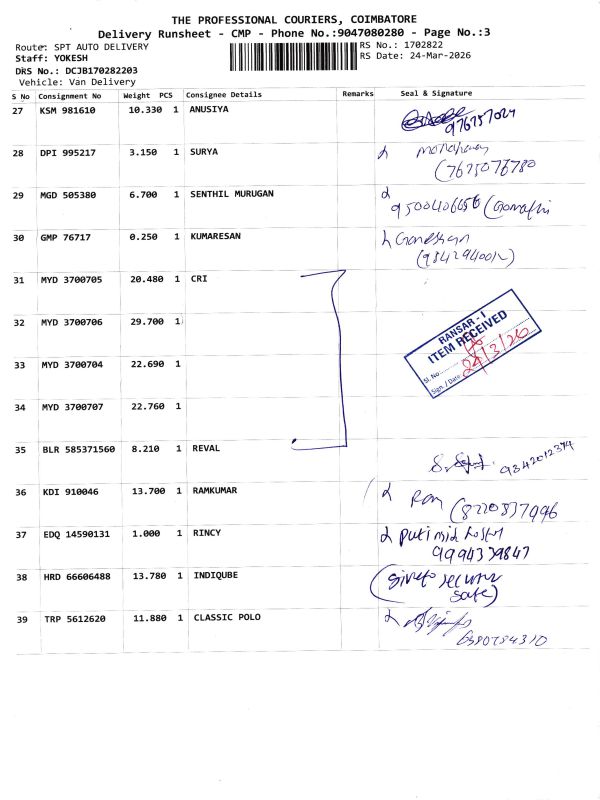 THE PROFESSIONAL COURIERS, COIMBATORE
Delivery Runsheet - CMP - Phone No.:9047080280 - Page No.:3
Route: SPT AUTO DELIVERY
RS No.: 1702822
Staff: YOKESH
RS Date: 24-Mar-2026
DRS No.: DCJB170282203
Vehicle: Van Delivery
S No Consignment No Weight PCS Consignee Details Remarks Seal & Signature
27 KSM 981610 10.330 1 ANUSIYA
28 DPI 995217 3.150 1 SURYA
29 MGD 505380 6.700 1 SENTHIL MURUGAN
9500406656 (Gomathi
30 GMP 76717 0.250 1 KUMARESAN
Ganeshan
31 MYD 3700705 20.480 1 CRI
32 MYD 3700706 29.700 1
RANSAR - I
ITEM RECEIVED
Sl. No.
Sign. / Date
24/3/26
33 MYD 3700704 22.690 1
34 MYD 3700707 22.760 1
35 BLR 585371560 8.210 1 REVAL
9342012374
36 KDI 910046 13.700 1 RAMKUMAR
Ram
(8220837996
37 EDQ 14590131 1.000 1 RINCY
9994339847
38 HRD 66606488 13.780 1 INDIQUBE
39 TRP 5612620 11.880 1 CLASSIC POLO